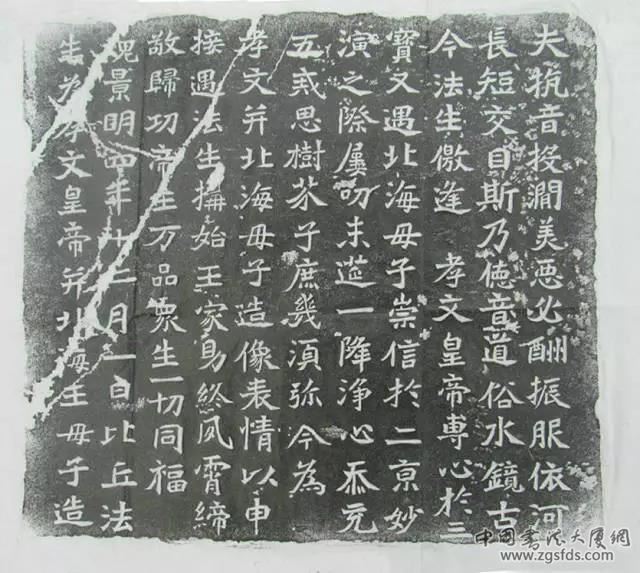 夫抗音投澗美惡必酬振服依河
長短交目斯乃德音道俗水鏡古
今法生儌逢 孝文皇帝專心於三
寶又遇北海母子崇信於二京妙
演之際屢叨末筵一降淨心忝充
五戒思樹芥子庶幾須弥今為
孝文并北海母子造像表情以申
接遇法生構始王家易終夙霄締
敬歸功帝王万品眾生一切同福
魏景明四年十二月一日比丘法
生為孝文皇帝并北海王母子造
中國書法大厦網
www.zgsfds.com